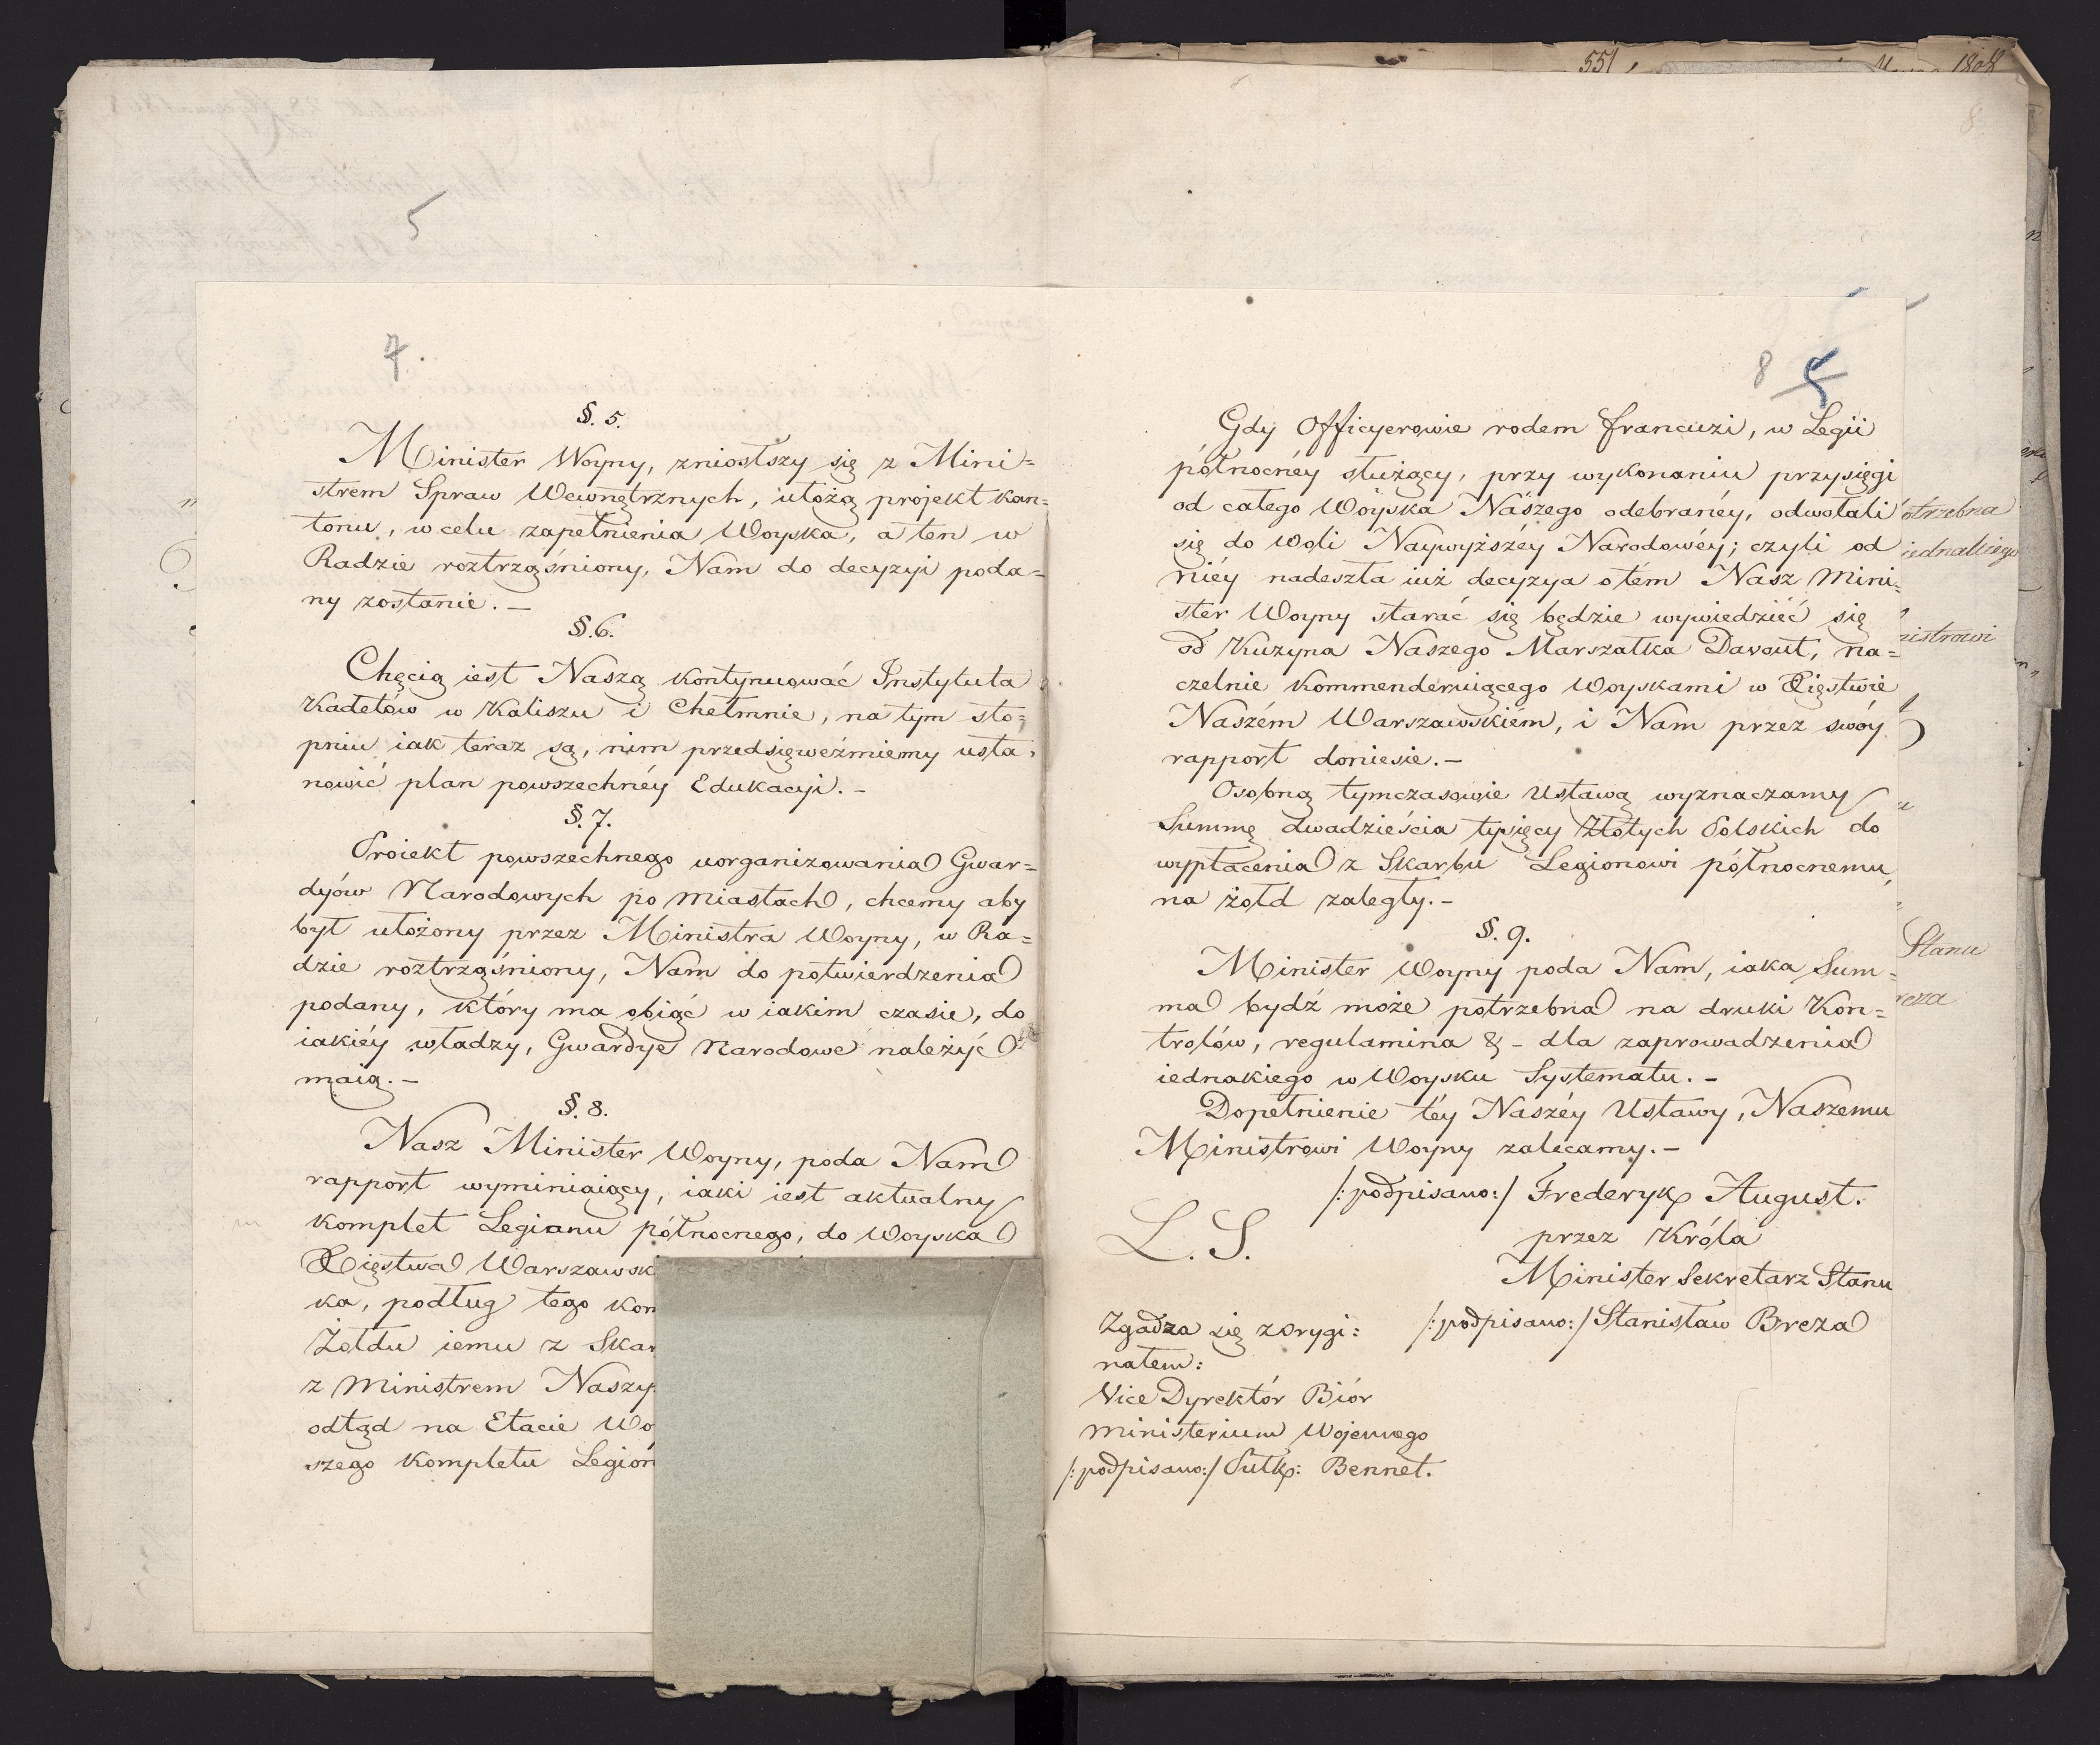 551
1808
8
5
7.
§. 5.
Minister Woyny, zniosłszy się z Mini=
strem Spraw Wewnętrznych, ułożą projekt kan=
tonu, w celu zapełnienia Woyska, a ten w
Radzie roztrząśniony, Nam do decyzyi poda=
ny zostanie. —
§. 6.
Chęcią iest Naszą kontynuować Instytuta
Kadetów w Kaliszu i Chełmnie, na tym sto=
pniu iak teraz są, nim przedsięweźmiemy usta=
nowić plan powszechnéy Edukacyi. —
§. 7.
Proiekt powszechnego uorganizowania Gwar=
dyów Narodowych po miastach, chcemy aby
był ułożony przez Ministra Woyny, w Ra=
dzie roztrząśniony, Nam do potwierdzenia
podany, który ma obiąć w iakim czasie, do
iakiéy władzy, Gwardye Narodowe należyć
maią. —
§. 8.
Nasz Minister Woyny, poda Nam
rapport wyminiaiący, iaki iest aktualny
komplet Legianu północnego, do Woyska
Xięstwa Warszawsk
ka, podług tego kom
Żołdu iemu z Skar
z Ministrem Naszy
odtąd na Etacie Wo
szego kompletu Legion
8 5
Gdy Officyerowie rodem francuzi, w Legii
północnéy służący, przy wykonaniu przysięgi
od całego Woyska Naszego odebranéy, odwołali
się do Woli Naywyższéy Narodowéy; czyli od
niéy nadeszła iuż decyzya o tém Nasz Mini=
ster Woyny starać się będzie wywiedzieć się
od Kuzyna Naszego Marszałka Davout, na=
czelnie kommenderuiącego Woyskami w Xięstwie
Naszém Warszawskiém, i Nam przez swóy
rapport doniesie. —
Osobną tymczasowie Ustawą wyznaczamy
Summę dwadzieścia tysięcy Złotych Polskich do
wypłacenia z Skarbu Legionowi północnemu,
na żołd zaległy. —
§. 9.
Minister Woyny poda Nam, iaka Sum=
ma bydź może potrzebna na druki Kon=
trolów, regulamina & - dla zaprowadzenia
iednakiego w Woysku Systematu. —
Dopełnienie téy Naszéy Ustawy, Naszemu
Ministrowi Woyny zalecamy. —
/:podpisano:/ Frederyk August.
L. S.
przez Króla
Minister Sekretarz Stanu
/:podpisano:/ Stanisław Breza
Zgadza się z orygi=
nałem:
Vice Dyrektór Biór
Ministerium Wojennego
/:podpisano:/ Pułk: Bennet.
otrzebna
iednakiego
nistrowi
Stanu
reza